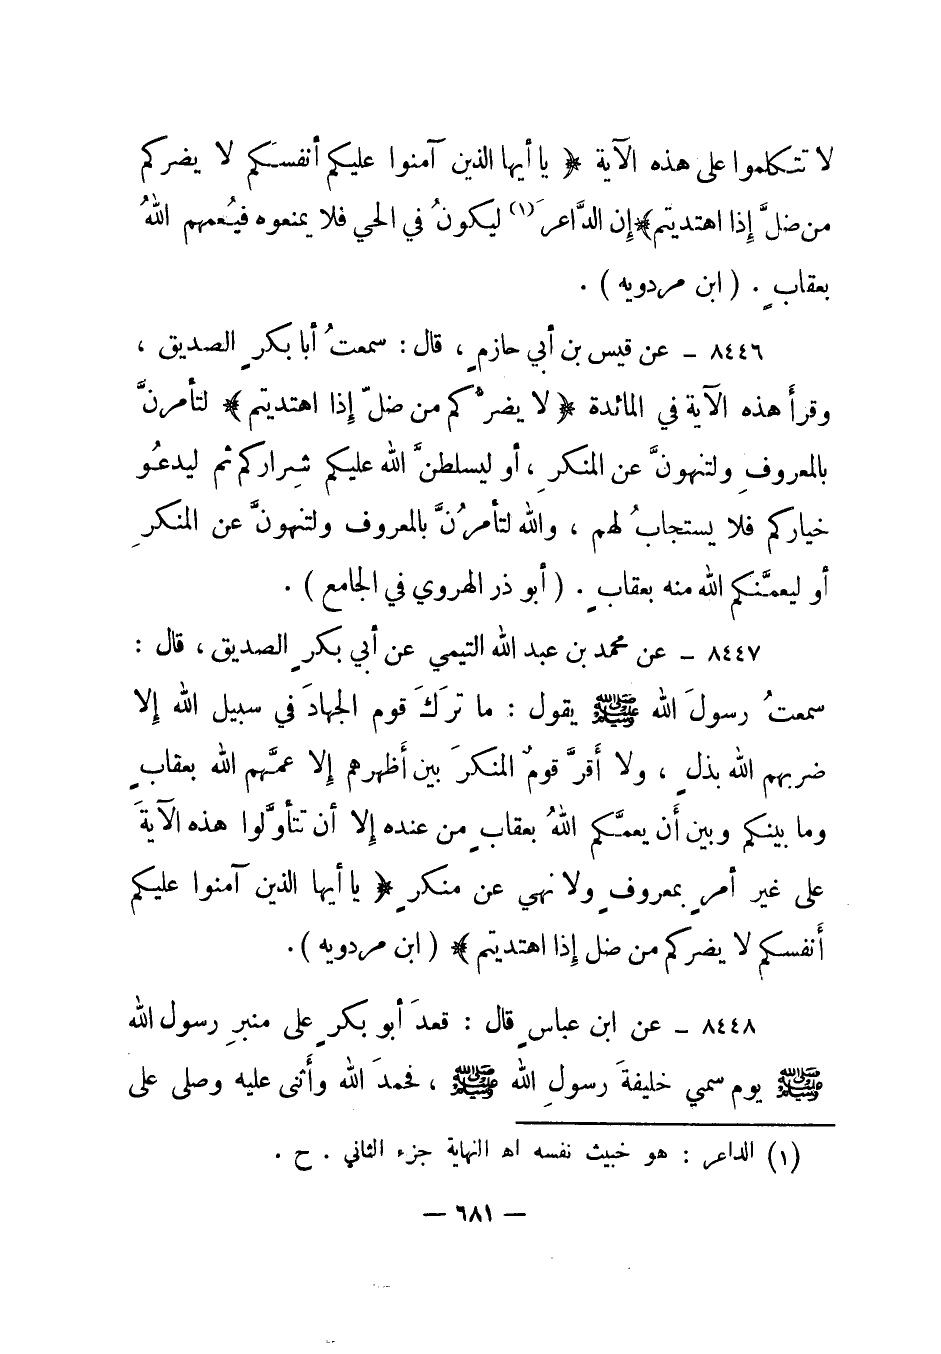 لا تتكلموا على هذه الآية ﴿ يا أيها الذين آمنوا عليكم أنفسَكم لا يضركم
من ضلَّ إذا اهتديتم﴾ إن الدَّاعرَ(١) ليكونُ في الحي فلا يمنعوه فيُعمهم اللهُ
بعقابٍ . ( ابن مردويه ) .
٨٤٤٦ ـ عن قيس بن أبي حازمٍ ، قال : سمعتُ أبا بكرٍ الصديق ،
وقرأَ هذه الآية في المائدة ﴿ لا يضرُّكم من ضلّ إذا اهتديتم ﴾ لتأمرنَّ
بالمعروفِ ولتنهونَّ عن المنكرِ ، أو ليسلطنَّ الله عليكم شِراركم ثم ليدعُو
خياركم فلا يستجابُ لهم ، والله لتأمرُنَّ بالمعروف ولتنهونَّ عن المنكرِ
أو ليعمَّنكم الله منه بعقابٍ . ( أبو ذر الهروي في الجامع ) .
٨٤٤٧ ـ عن محمد بن عبد الله التيمي عن أبي بكرٍ الصديق ، قال :
سمعتُ رسولَ الله ﷺ يقول : ما تركَ قوم الجهادَ في سبيل الله إلا
ضربهم الله بذلٍ ، ولا أَقرَّ قومٌ المنكرَ بين أَظهرهم إلا عمَّهم الله بعقابٍ
وما بينكم وبين أَن يعمَّكم اللهُ بعقابٍ من عنده إلا أن تتأوَّلوا هذه الآيةَ
على غير أمرٍ بمعروفٍ ولا نهي عن منكرٍ ﴿ يا أيها الذين آمنوا عليكم
أَنفسكم لا يضركم من ضل إذا اهتديتم ﴾ ( ابن مردويه ) .
٨٤٤٨ ـ عن ابن عباسٍ قال : قعدَ أبو بكرٍ على منبرِ رسول الله
ﷺ يوم سمي خليفةَ رسولِ الله ﷺ ، فحمدَ الله وأَثنى عليه وصلى على
(١) الداعر : هو خبيث نفسه اه النهاية جزء الثاني . ح .
— ٦٨١ —